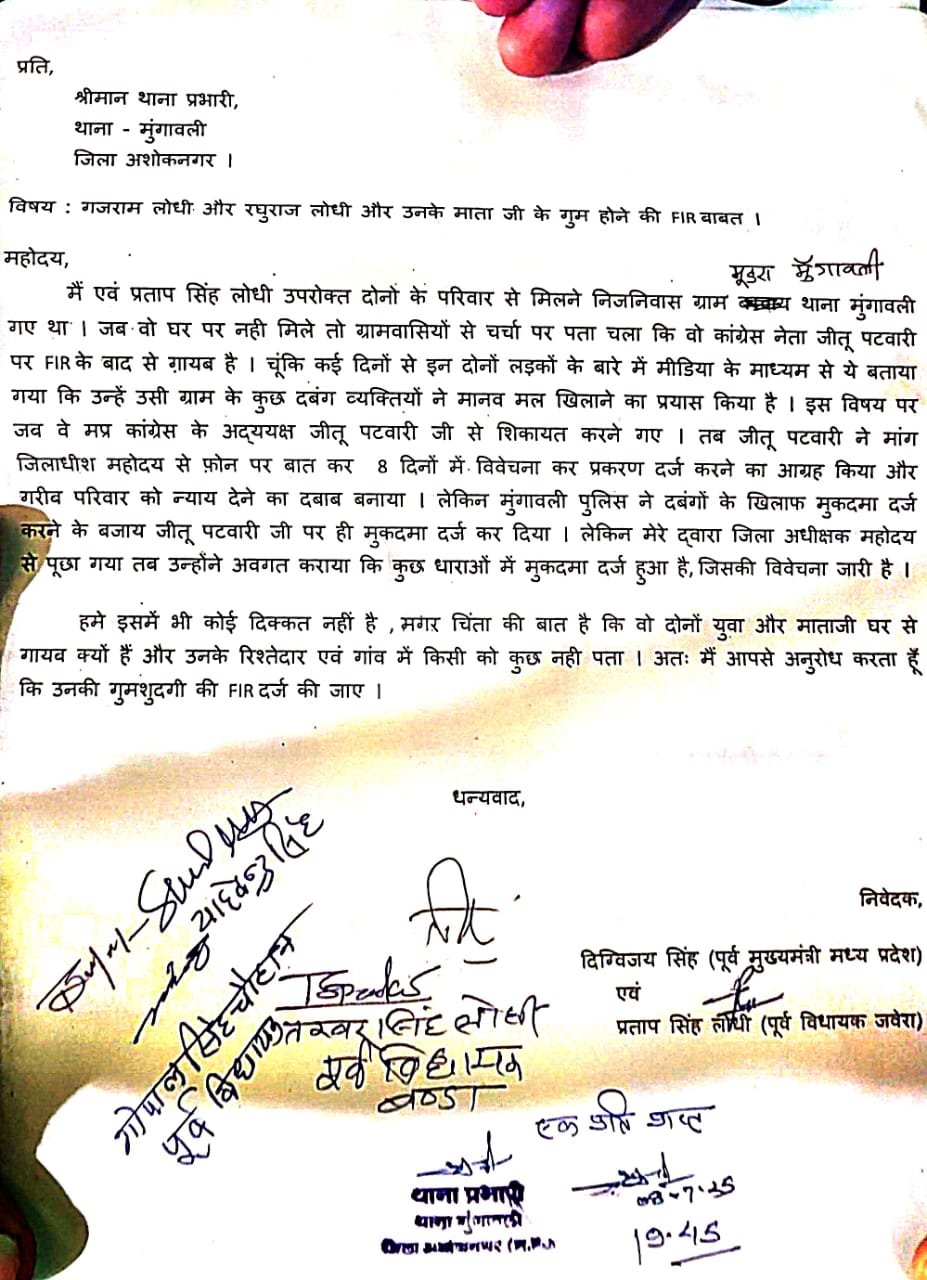 प्रति,
श्रीमान थाना प्रभारी,
थाना - मुंगावली
जिला अशोकनगर ।
विषय : गजराम लोधी और रघुराज लोधी और उनके माता जी के गुम होने की FIR बाबत ।
महोदय,
मूडरा मुँगावली
मैं एवं प्रताप सिंह लोधी उपरोक्त दोनों के परिवार से मिलने निजनिवास ग्राम थाना मुंगावली
गए था । जब वो घर पर नही मिले तो ग्रामवासियों से चर्चा पर पता चला कि वो कांग्रेस नेता जीतू पटवारी
पर FIR के बाद से ग़ायब है । चूंकि कई दिनों से इन दोनों लड़कों के बारे में मीडिया के माध्यम से ये बताया
गया कि उन्हें उसी ग्राम के कुछ दबंग व्यक्तियों ने मानव मल खिलाने का प्रयास किया है । इस विषय पर
जब वे मप्र कांग्रेस के अद्ययक्ष जीतू पटवारी जी से शिकायत करने गए । तब जीतू पटवारी ने मांग
जिलाधीश महोदय से फ़ोन पर बात कर 8 दिनों में विवेचना कर प्रकरण दर्ज करने का आग्रह किया और
गरीब परिवार को न्याय देने का दबाब बनाया । लेकिन मुंगावली पुलिस ने दबंगों के खिलाफ मुकदमा दर्ज
करने के बजाय जीतू पटवारी जी पर ही मुकदमा दर्ज कर दिया । लेकिन मेरे द्वारा जिला अधीक्षक महोदय
से पूछा गया तब उन्होंने अवगत कराया कि कुछ धाराओं में मुकदमा दर्ज हुआ है, जिसकी विवेचना जारी है ।
हमे इसमें भी कोई दिक्कत नहीं है , मगर चिंता की बात है कि वो दोनों युवा और माताजी घर से
गायब क्यों हैं और उनके रिश्तेदार एवं गांव में किसी को कुछ नही पता । अतः मैं आपसे अनुरोध करता हूँ
कि उनकी गुमशुदगी की FIR दर्ज की जाए ।
धन्यवाद,
निवेदक,
दिग्विजय सिंह (पूर्व मुख्यमंत्री मध्य प्रदेश)
एवं
प्रताप सिंह लोधी (पूर्व विधायक जवेरा)
यादवेन्द्र सिंह
गोपाल सिंह चौहान
पूर्व विधायक
तरवर सिंह लोधी
पूर्व विधायक
बण्डा
एक प्रति प्राप्त
थाना प्रभारी
थाना मुंगावली
जिला अशोकनगर (म.प्र.)
08-7-25
19.45